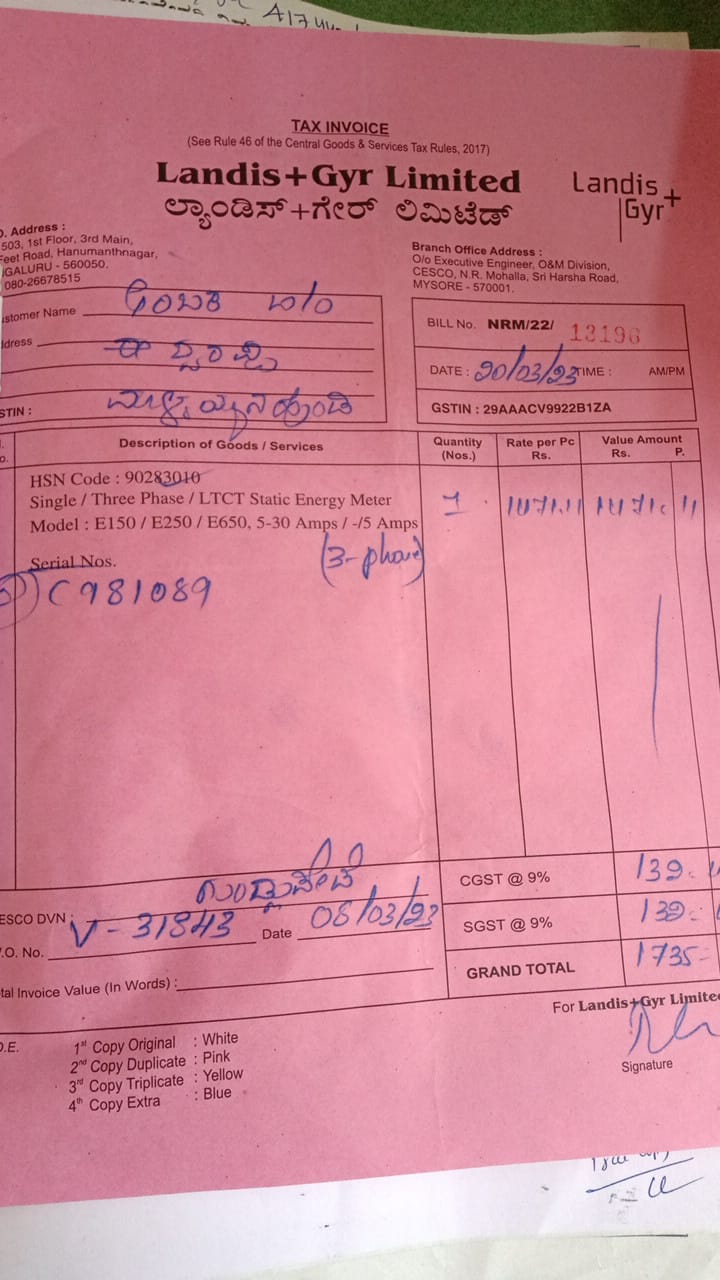 A17
TAX INVOICE
(See Rule 46 of the Central Goods & Services Tax Rules, 2017)
Landis+Gyr Limited
ಲ್ಯಾಂಡಿಸ್+ಗೇರ್ ಲಿಮಿಟೆಡ್
Landis+Gyr
Address :
503, 1st Floor, 3rd Main,
eet Road, Hanumanthnagar,
GALURU - 560050.
080-26678515
Branch Office Address :
O/o Executive Engineer, O&M Division,
CESCO, N.R. Mohalla, Sri Harsha Road,
MYSORE - 570001.
ustomer Name
ddress
STIN :
BILL No. NRM/22/ 13196
DATE : 20/03/23 TIME : AM/PM
GSTIN : 29AAACV9922B1ZA
Description of Goods / Services
Quantity (Nos.)
Rate per Pc Rs.
Value Amount Rs. P.
HSN Code : 90283010
Single / Three Phase / LTCT Static Energy Meter
Model : E150 / E250 / E650, 5-30 Amps / -/5 Amps
1 1471.11 1471. 11
Serial Nos. (3-phase)
C981089
ಗುಂಡ್ಲುಪೇಟೆ
ESCO DVN :
V-31843 Date 08/03/23
.O. No.
tal Invoice Value (In Words) :
CGST @ 9% 132.
SGST @ 9% 132.
GRAND TOTAL 1735-
For Landis+Gyr Limite
Signature
O.E.
1st Copy Original : White
2nd Copy Duplicate : Pink
3rd Copy Triplicate : Yellow
4th Copy Extra : Blue